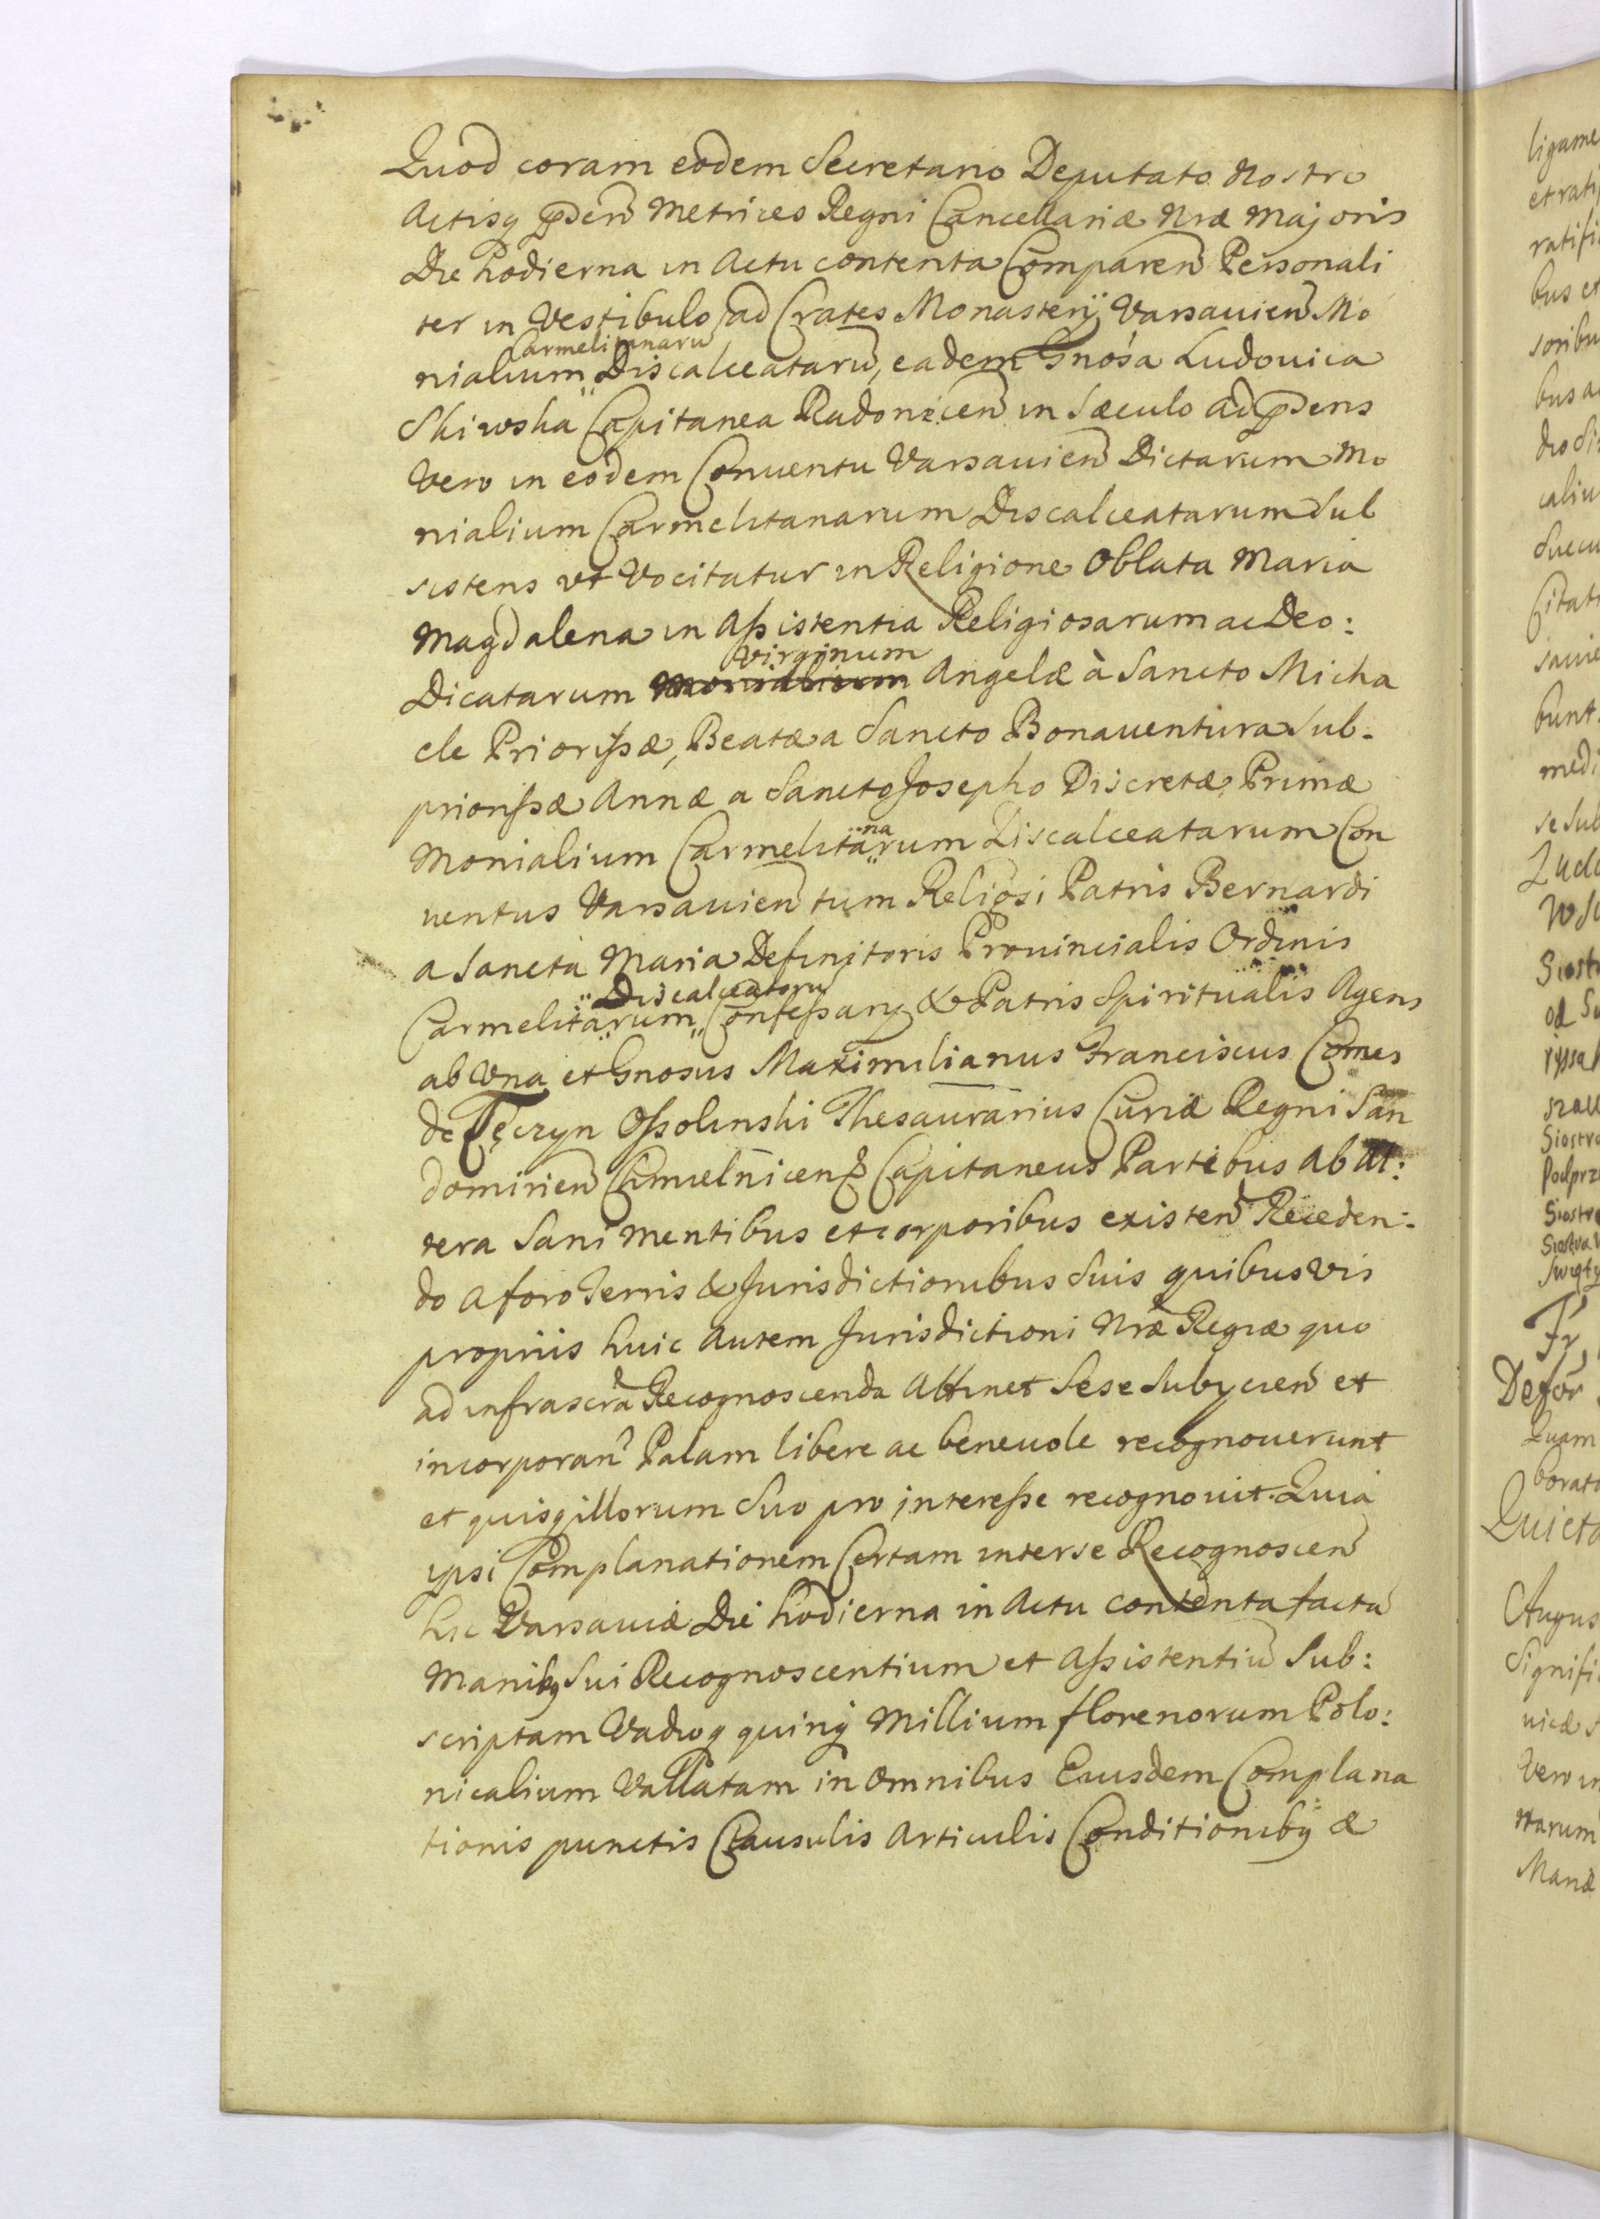 Quod coram eodem Secretario Deputato Nostro
Actisq̃ p̃sen̄ Metrices Regni Cancellariæ Nr̃æ Majoris
Die hodierna in Actu contenta Comparen̄ Personali
ter in Vestibulo ad Crates Monasterÿ Varsavien̄ Mo
Carmelitanarū
nialium Discalceatarū, eadem Gnosa Ludovica
Skiwska Capitanea Radonicen̄ in Sæculo ad p̃sens
Vero in eodem Conventu Varsavien̄ Dictarum Mo
nialium Carmelitanarum Discalceatarum Sub
sistens ut Vocitatur in Religione Oblata Maria
Magdalena in Assistentia Religiosarum ac Deo:
Virginum
Dicatarum Monialium Angelæ à Sancto Micha
ele Priorissæ, Beatæ a Sancto Bonaventura Sub-
priorissæ Annæ a Sancto Josepho Discretæ Primæ
na
Monialium Carmelitarum Discalceatarum Con
ventus Varsavien̄ tum Religosi Patris Bernardi
a Sancta Maria Definitoris Provincialis Ordinis
Discalceatorū
Carmelitarum Confessarÿ & Patris Spiritualis Agens
ab Una et Gnosus Maximilianus Franciscus Comes
de Tęczyn Ossolinski Thesaurarius Curiæ Regni San
domirien̄ Chmielnicen̄q̃ Capitaneus Partibus ab Al:
tera Sani Mentibus et corporibus existen̄ Receden-
do a foro Terris & Jurisdictionibus Suis quibusvis
propriis huic autem Jurisdictioni Nr̃æ Regiæ quo
ad infrascr̃a Recognoscenda Attinet Sese Subÿcien̄ et
incorporan̄ Palam libere ac benevole recognoverunt
et quisq̃ illorum Suo pro interesse recognovit. Quia
ipsi Complanationem Certam inter se Recognoscen̄
hic Varsaviæ Die hodierna in Actu contenta factā
Manibq̃ Sui Recognoscentium et Assistentiū Sub:
scriptam Vadioq̃ quinq̃ Millium florenorum Polo:
nicalium Vallatam in Omnibus Eiusdem Complana
tionis punctis Clausulis Articulis Conditionibq̃ &